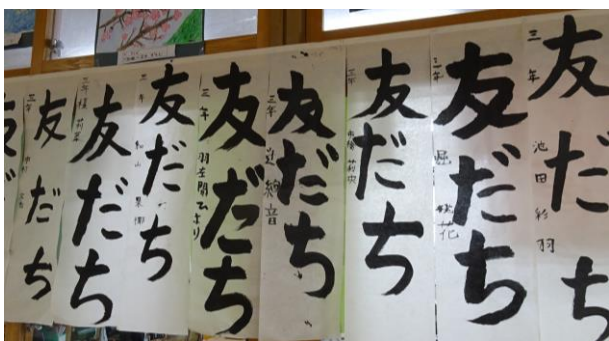 友だち
三年 池田彩羽
友だち
三年 堀 花
友だち
三年 莉央
友だち
三年 音
友だち
三年 羽左間ひより
友だち
三年
友だち
三年
友だち
三年